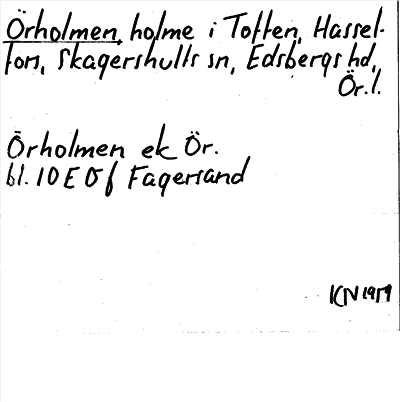 Örholmen, holme i Toften, Hassel-
fors, Skagershults sn, Edsbergs hd,
Ör. l.
Örholmen ek Ör.
bl. 10E 0f Fagersand
KN 1959